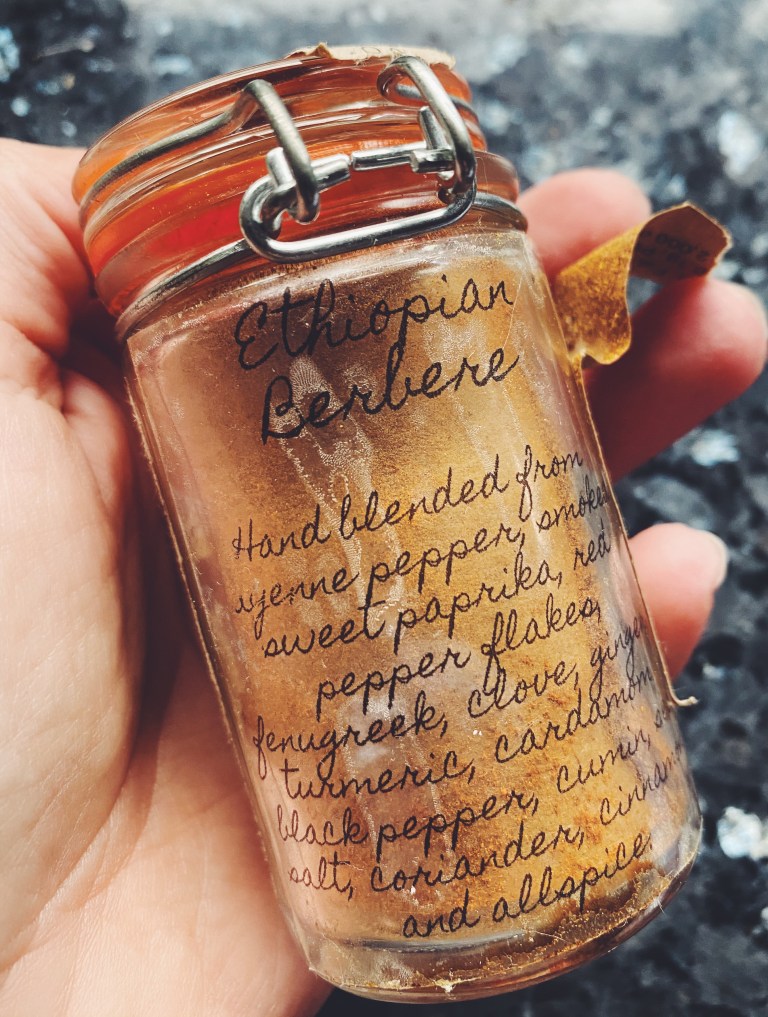 Ethiopian
Berbere
Hand blended from
yenne pepper, smoke
sweet paprika, red
pepper flakes,
fenugreek, clove, ginger
turmeric, cardamom
black pepper, cumin,
salt, coriander, cinnam
and allspice.